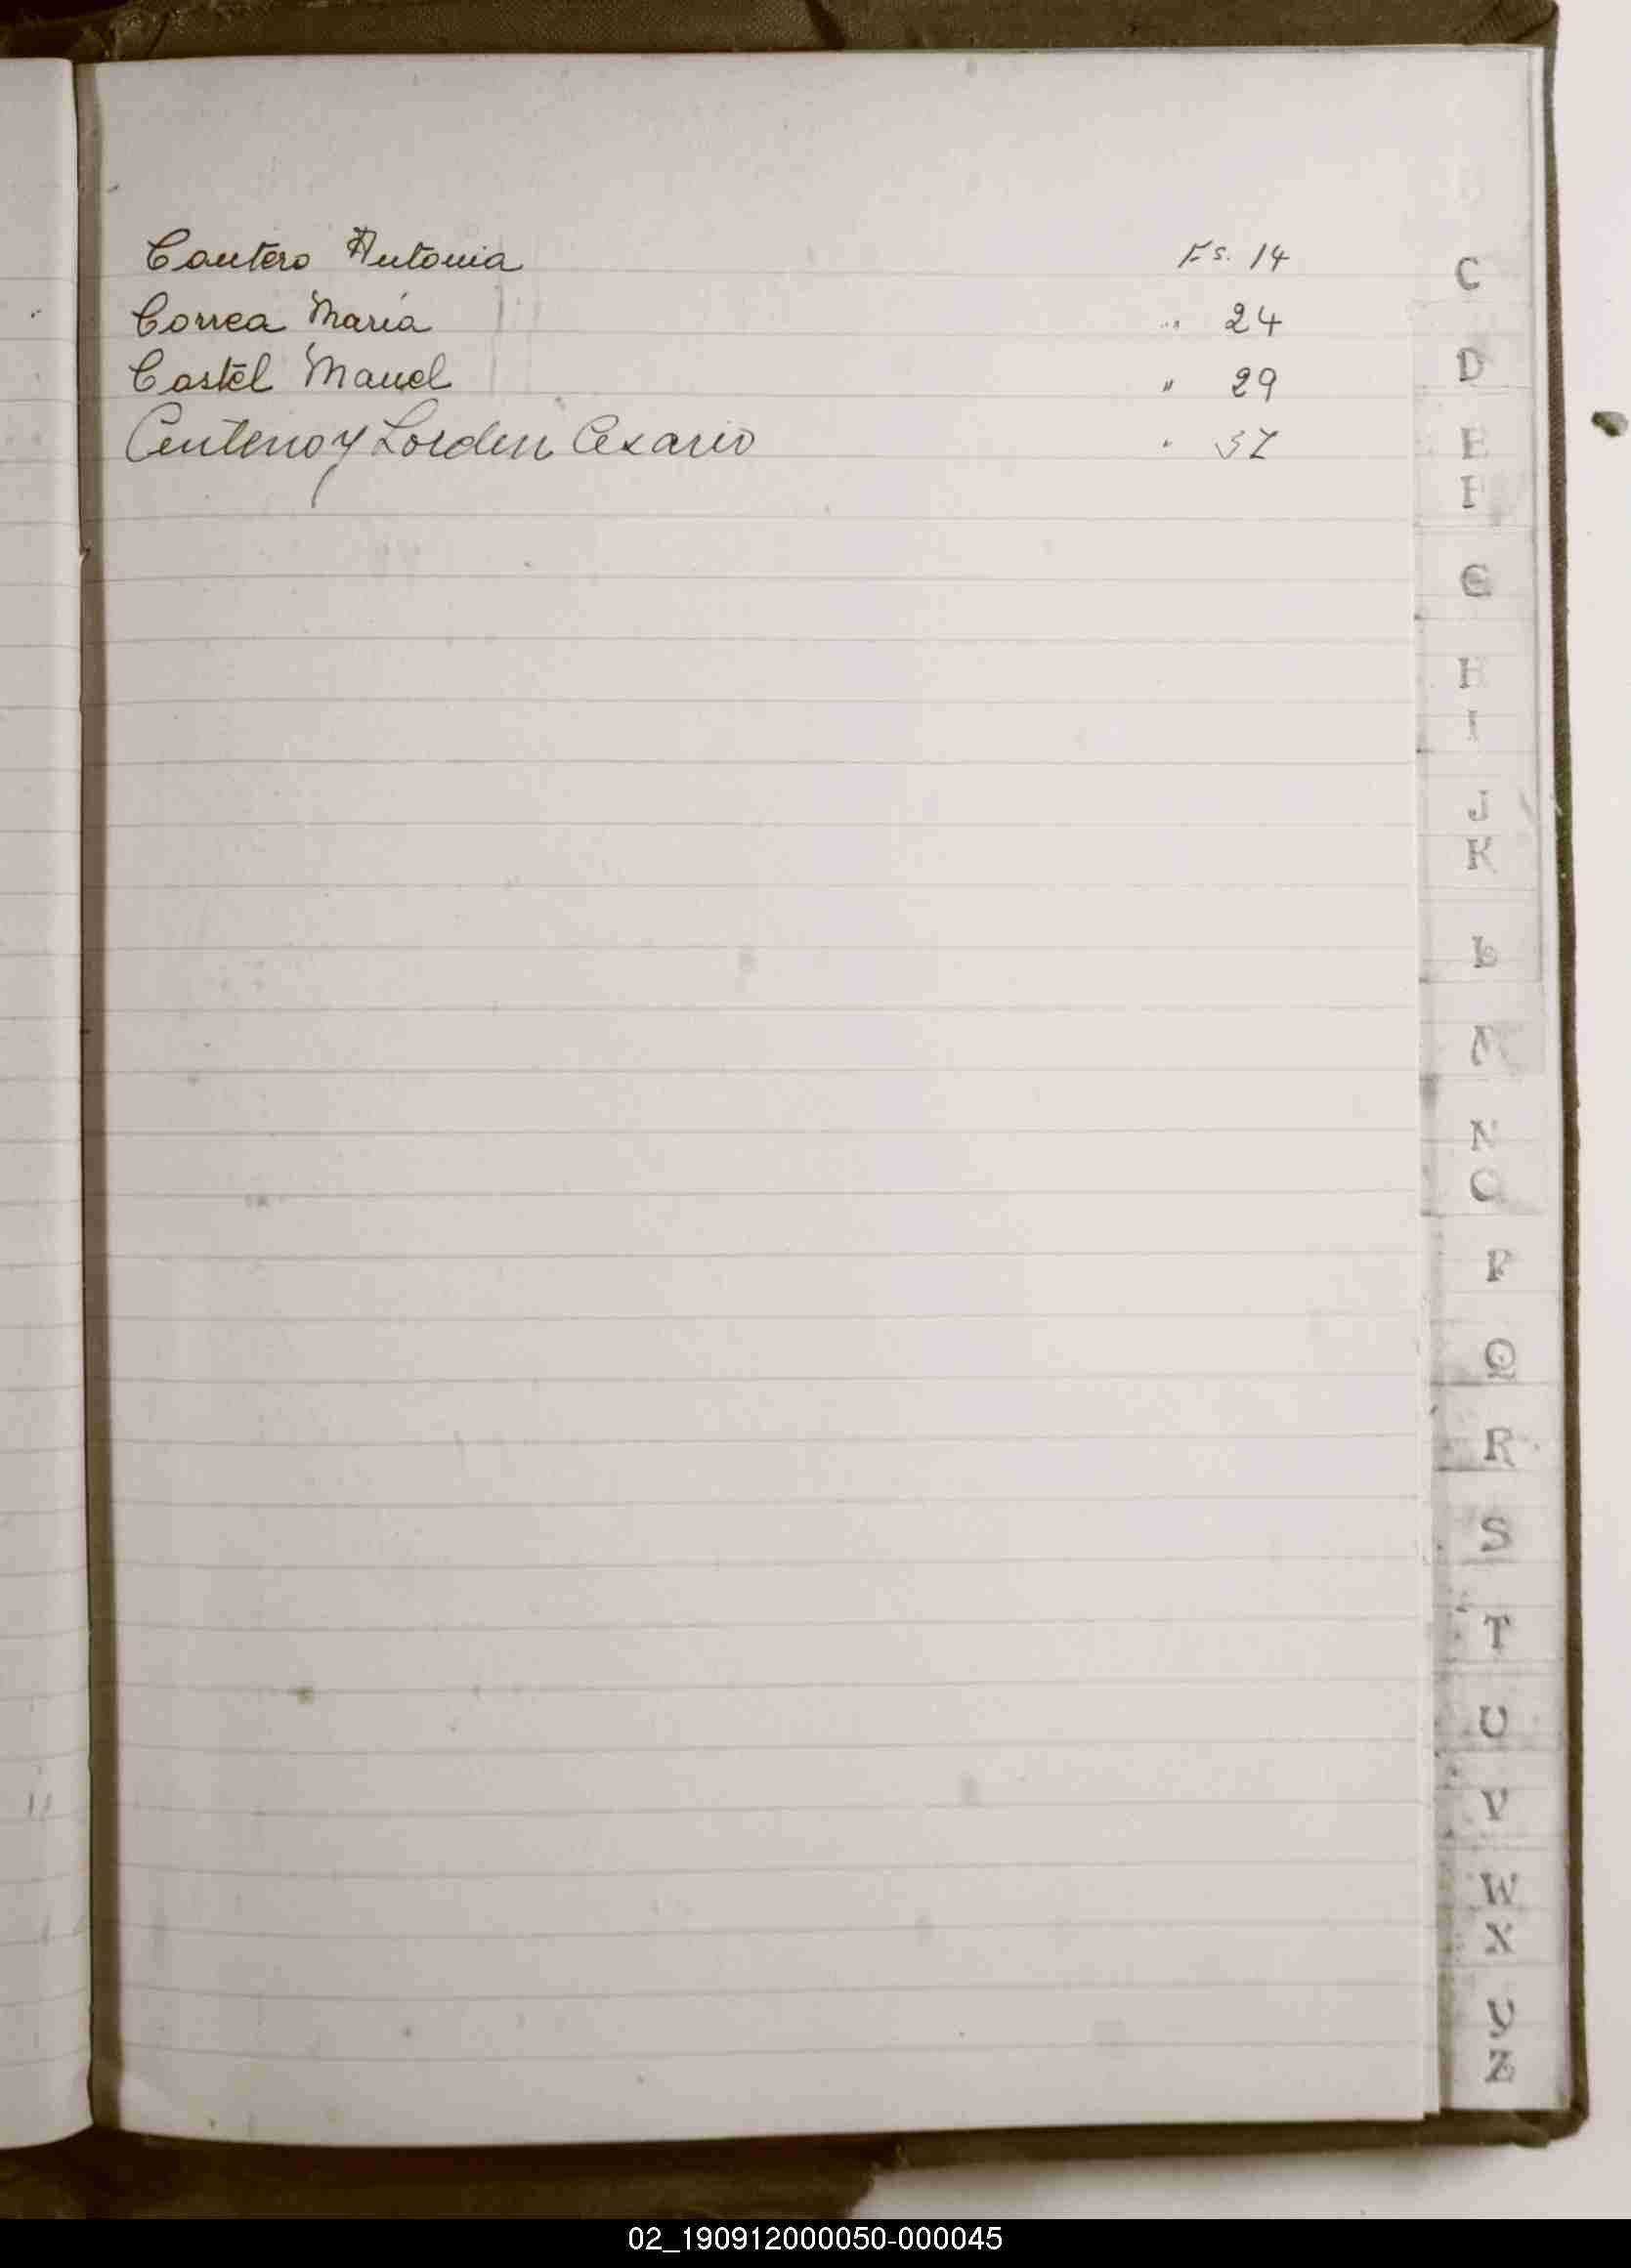 Cantero Antonia Fs. 14
Correa María " 24
Castel Manuel " 29
Centeno y Lorden Cesareo " 37
C
D
E
F
G
H
I
J
K
L
M
N
O
P
Q
R
S
T
U
V
W
X
Y
Z
02_190912000050-000045